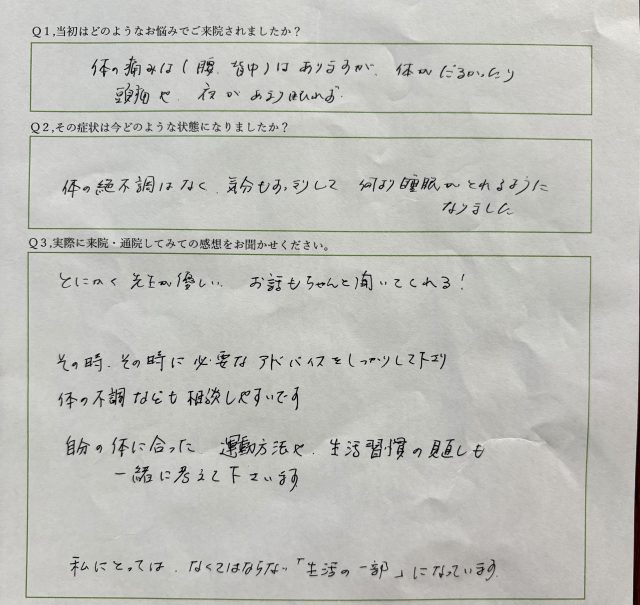 Q1,当初はどのようなお悩みでご来院されましたか？
体の痛みは(腰、背中)はありますが、体がだるかったり
頭痛や、夜があまり眠れず.
Q2,その症状は今どのような状態になりましたか？
体の絶不調はなく、気分もすっきりして 何より睡眠がとれるように
なりました
Q3,実際に来院・通院してみての感想をお聞かせください。
とにかく先生が優しい. お話もちゃんと聞いてくれる!
その時、その時に必要なアドバイスをしっかりして下さり
体の不調なども相談しやすいです
自分の体に合った 運動方法や、生活習慣の見直しも
一緒に考えて下さいます
私にとっては、なくてはならない「生活の一部」になっています.